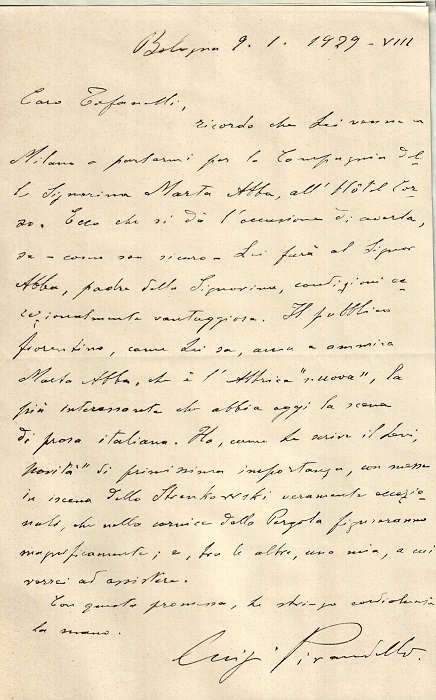 Bologna 9. 1. 1929 - VIII
Caro Tofanelli,
ricordo che Lei venne a
Milano a parlarmi per la Compagnia del-
la Signorina Marta Abba, all'Hôtel Cor-
so. Ecco che si dà l'occasione di averla,
se - come son sicuro - Lei farà al Signor
Abba, padre della Signorina, condizioni ec-
cezionalmente vantaggiose. Il pubblico
fiorentino, come Lei sa, ama e ammira
Marta Abba, che è l'Attrice "nuova", la
più interessante che abbia oggi la scena
di prosa italiana. Ha, come Le scrive il Levi,
"novità" di primissima importanza, con messe
in iscena dello Strenkowski veramente eccezio-
nali, che nella cornice della Pergola figureranno
magnificamente; e, tra le altre, una mia, a cui
verrei ad assistere.
Con questa promessa, Le stringo cordialmente
la mano.
Luigi Pirandello.